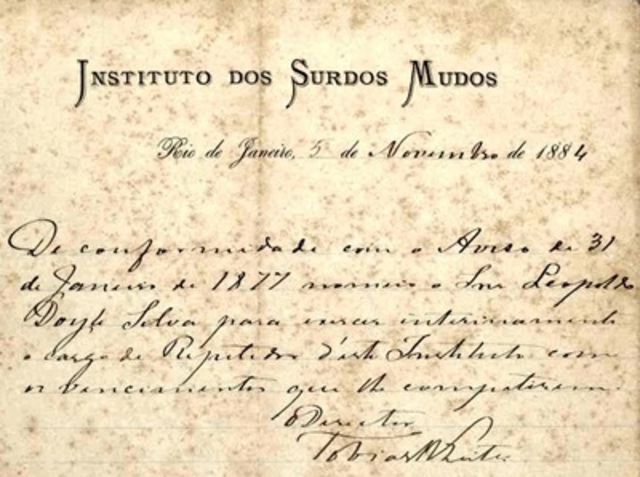 INSTITUTO DOS SURDOS MUDOS
Rio de Janeiro, 5 de Novembro de 1884
De conformidade com o Aviso de 31
de Janeiro de 1877 nomeio o Snr Leopoldo
Doyle Silva para exercer interinamente
o cargo de Repetidor d'este Instituto com
os vencimentos que lhe competirem.
O Director
Tobias Leite